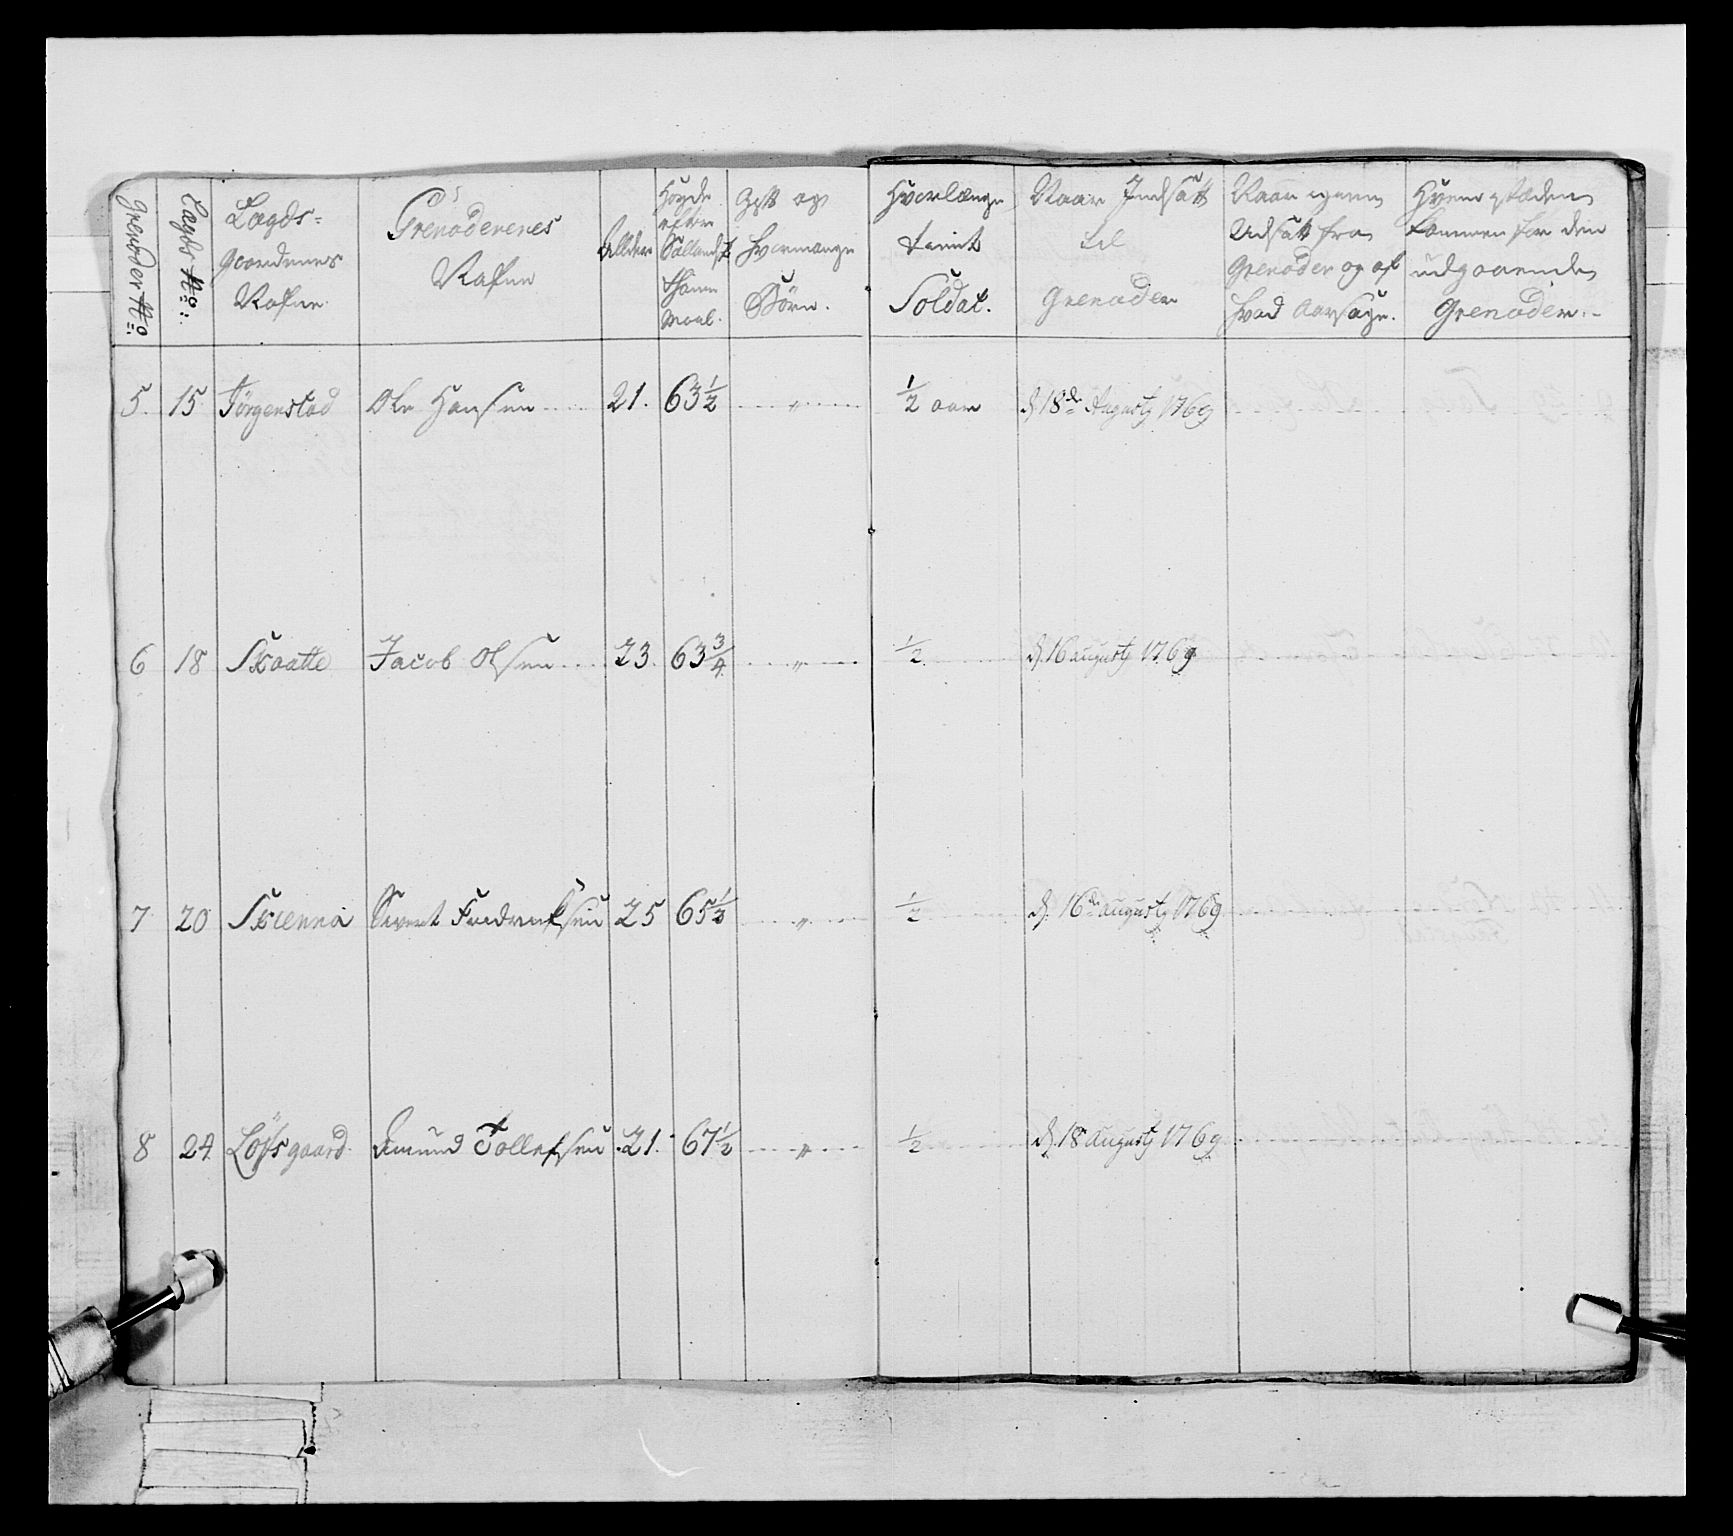 Grenader No
Lægds No
Lægds-
Gaardenes
Nafne
Grenaderenes
Nafne
Allder
Høyde
efter
Sællandsk
Maal.
Gift og
hvormange
Børn.
Hvorlænge
tient
Soldat.
Naar Indsatt
til
Grenader
Naar igien
Udsatt fra
Grenader og af
hvad Aarsage.
Hvem i stæden
kommen for den
udgaaende
Grenader.
5. 15 Jørgenstad Ole Hansen 21. 63 1/2 " 1/2 aar d. 18de Augusty 1769
6 18 Skaatte Jacob Olsen 23. 63 3/4 " 1/2 d. 16 augusty 1769
7 20 Skienna Sivert Fredrichsen 25 65 1/2 " 1/2 d. 16de augusty 1769
8 24 Løfsgaard Amund Tollefsen 21. 67 1/2 " 1/2 d. 18 augusty 1769